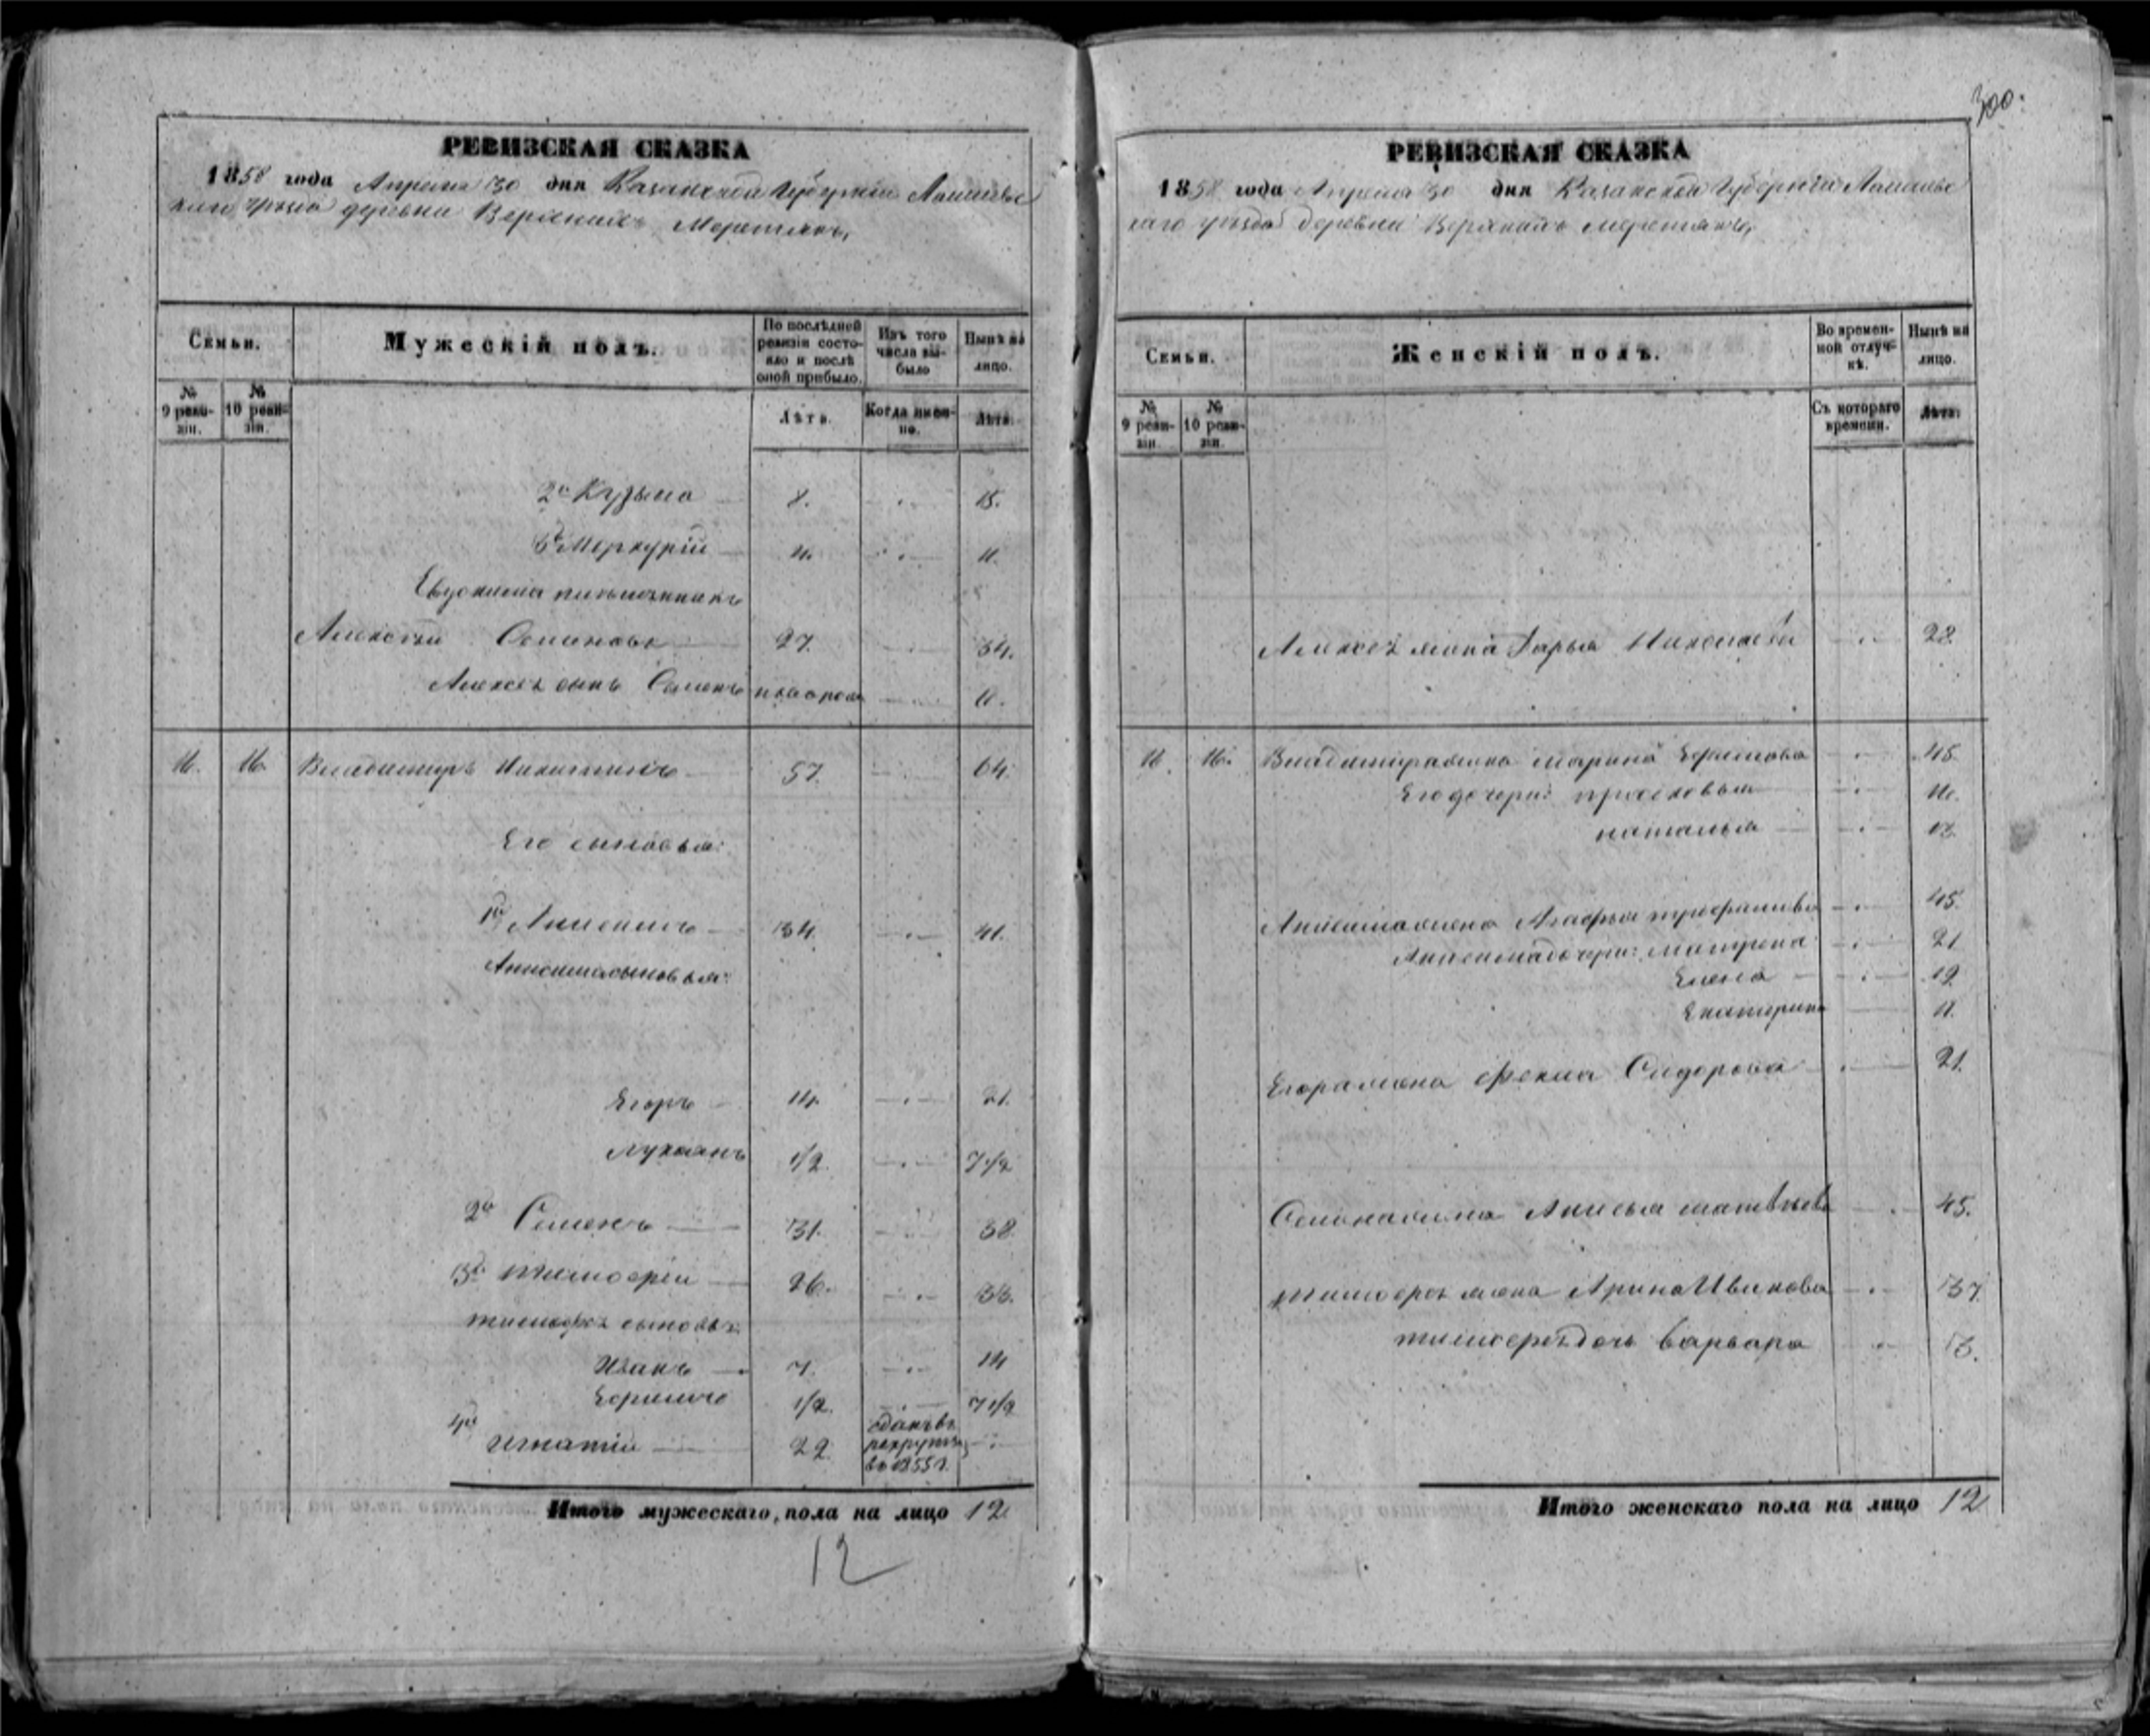 РЕВИЗСКАЯ СКАЗКА
1858 года Апреля 30 дня Казанской Губернии Лаишевс
каго уезда деревни Верхнихъ Меретякъ,
Семьи.
Мужескій полъ.
По послѣдней ревизіи состояло и послѣ оной прибыло.
Изъ того числа выбыло
Нынѣ на лицо.
№ 9 ревизіи.
№ 10 ревизіи.
Лѣта.
Когда именно.
Лѣта.
2й Кузьма 8. 15.
3й Меркурій 4. 11.
Евдокима племянникъ
Алексѣй Семеновъ 27. 34.
Алексѣя сынъ Семенъ 11.
16. 16. Владимиръ Никитинъ 57. 64.
Его сыновья:
1й Анисимъ 34. 41.
Анисима сыновья:
Егоръ 14. 21.
Лукьянъ 1/2. 7 1/2
2й Семенъ 31. 38.
3й Тимофей 26. 33.
Тимофея сыновья
Иванъ 7. 14
Ефимъ 1/2. 7 1/2
4й Игнатій 22. сданъ въ
рекруты
въ 1855 г.
Итого мужескаго, пола на лицо 12
12
300.
РЕВИЗСКАЯ СКАЗКА
1858 года Апреля 30 дня Казанской Губерніи Лаишевс
каго уезда деревни Верхнихъ Меретякъ,
Семьи.
Женскій полъ.
Во временной отлучкѣ.
Нынѣ на лицо.
№ 9 ревизіи.
№ 10 ревизіи.
Съ котораго времени.
Лѣта.
Алексея жена Дарья Николаева 28
16. 16. Владимира жена Марина Ефимова 45.
Его дочери: Прасковья 16.
Наталья
Анисима жена Агафья Трофимова 45.
Анисима дочери: Матрена 21
Елена 19
Екатерина 11.
Егора жена Фекла Сидорова 21.
Семена жена Анисья Матвеева 45.
Тимофея жена Арина Иванова 37.
Тимофея дочь Варвара 13.
Итого женскаго пола на лицо 12